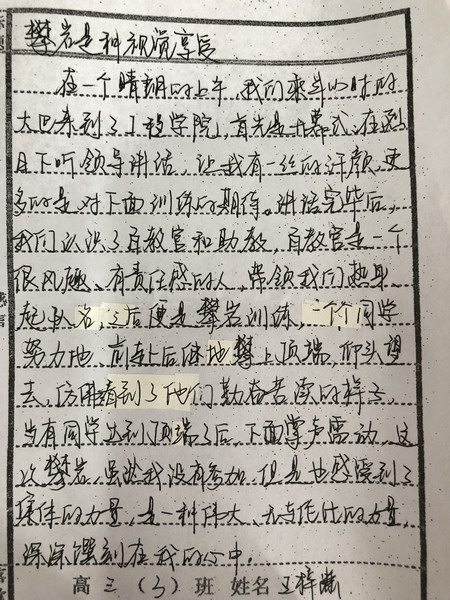 攀岩是种视觉享受
在一个晴朗的上午,我们乘半小时的
大巴来到了工程学院,首先是开幕式,在烈
日下听领导讲话,让我有一丝的汗颜,更
多的是对下面训练的期待。讲话完毕后,
我们认识了百教官和助教,百教官是一个
很风趣、有责任感的人,带领我们热身
起队名,之后便是攀岩训练,一个个同学
努力地,前赴后继地攀上顶端,仰头望
去,仿佛看到了他们勤奋苦读的样子,
当有同学达到顶端了后,下面掌声雷动,这
次攀岩,虽然我没有参加,但是也感受到了
集体的力量,是一种伟大、无与伦比的力量,
深深镌刻在我的心中。
高三(3)班 姓名 王梓